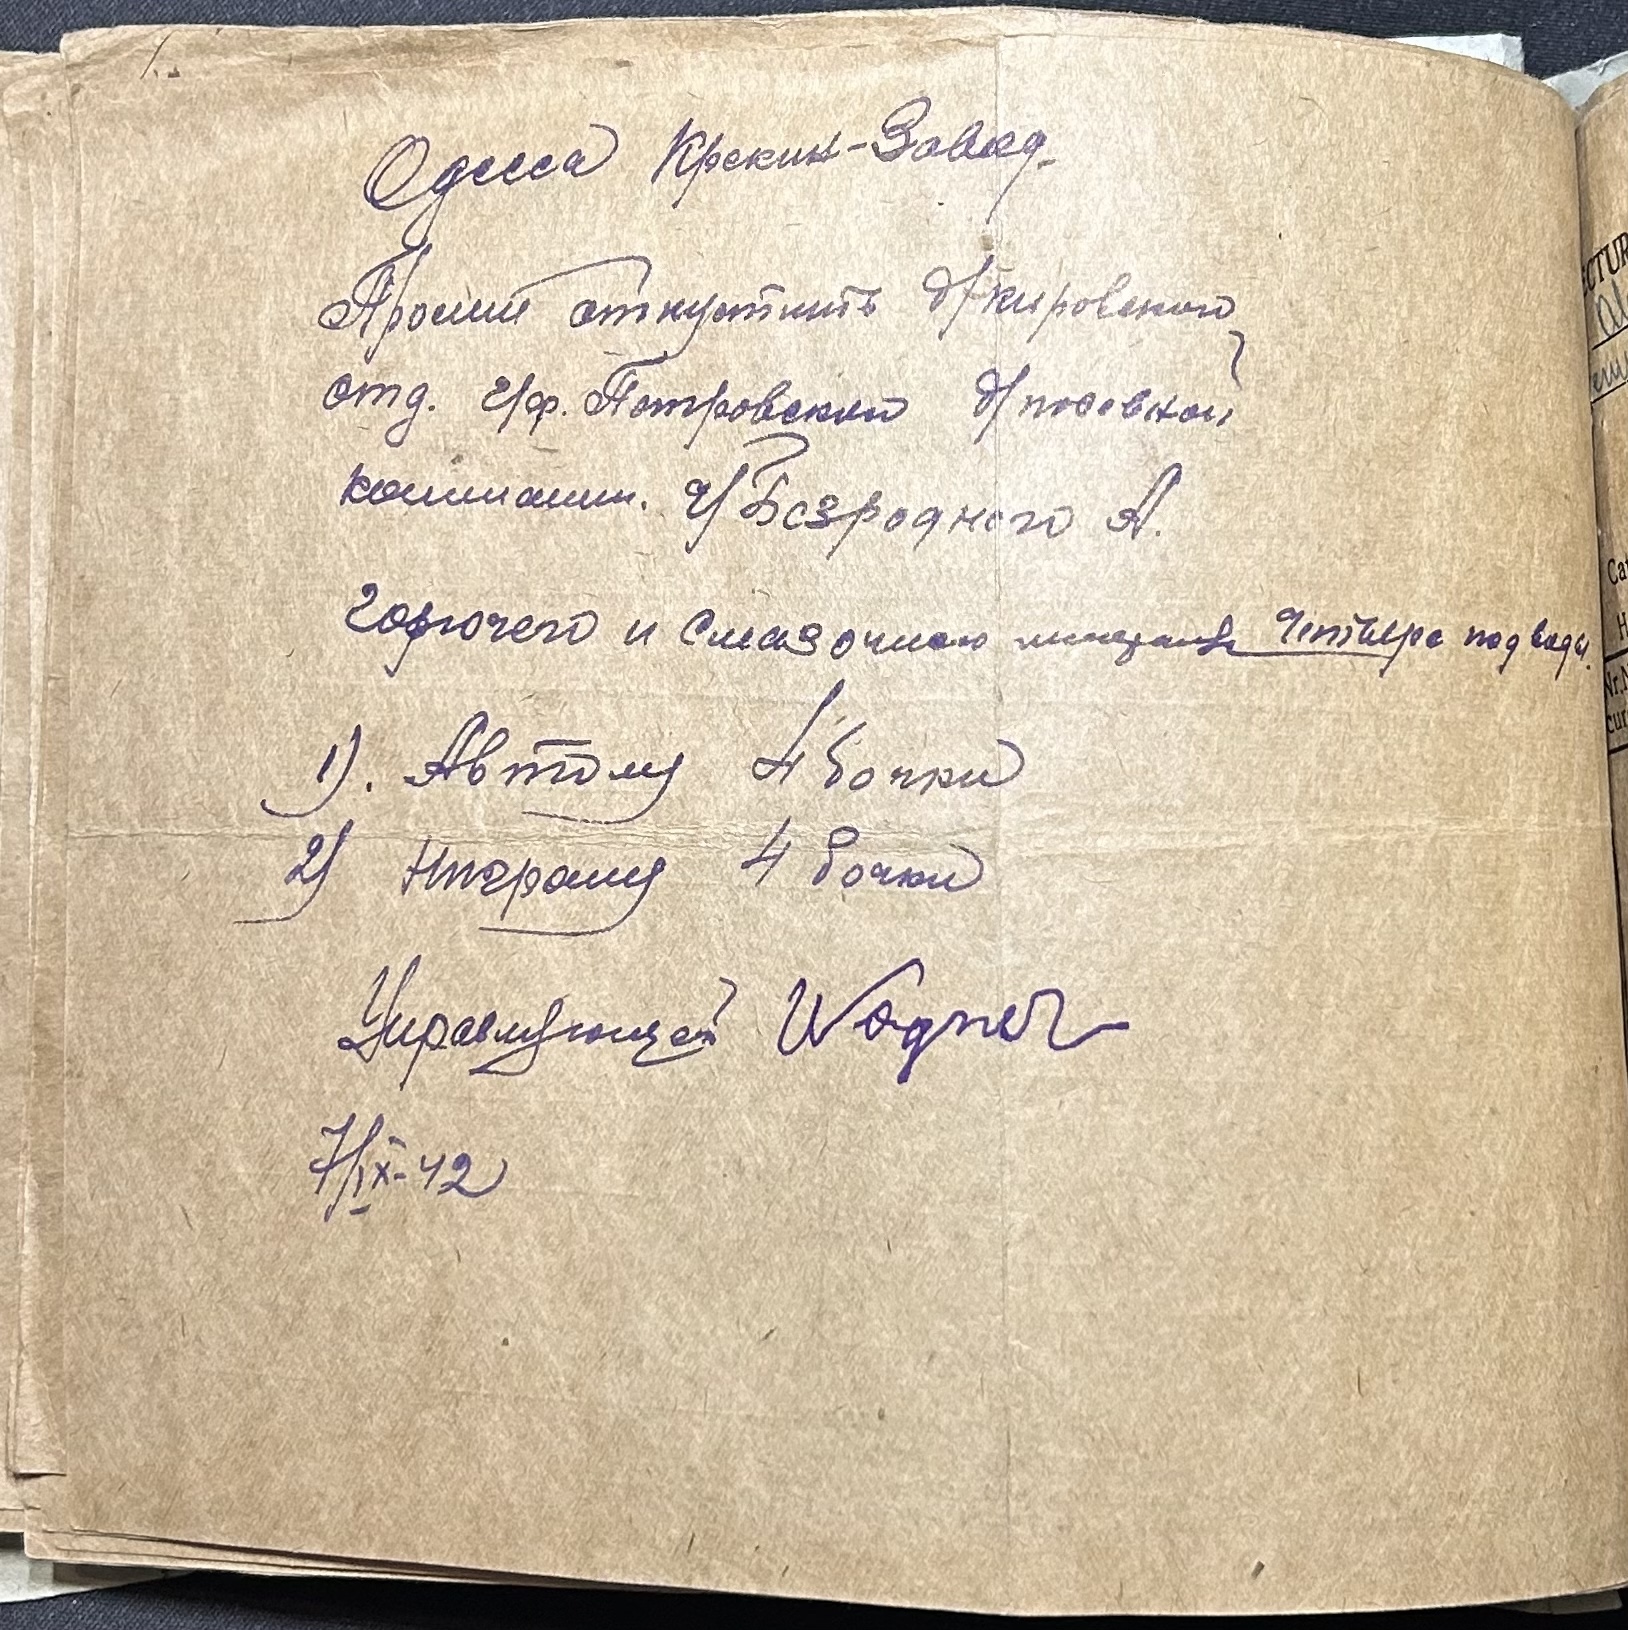 Одесса Крекин-Завод.
Просит отпустить д/кировского
отд. г/ф. Петровской д/посевной
компании. ч/Безродного А.
горючего и смазочного четвера подводы.
1). Автолу 4 бочки
2) Нигролу 4 бочки
Управляющей Wagner
7/IX-42
ECTUR
Ca
H
Nr.
cur